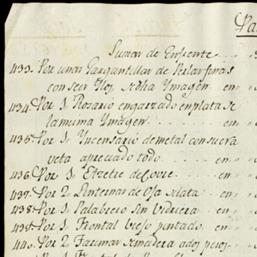 Pa
Sumar de Enfrente
433. Por unas Gargantillas de Perlas finas
con seis Hilos, d dha Ymagen en
434. Por 1. Rosario engarzado en plata de
la misma Ymagen en
435. Por 1. Yncensario de metal con su cra
veta apreciado todo en
436. Por 1. de Cobre en
437. Por 2. Linternas de Oja de lata en
438. Por 1. Palabrero Sin Vidriera en
439. Por 1. Frontal viejo pintado en
440. Por 2. de madera a dos pesos